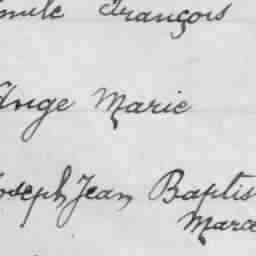 mile François
Ange Marie
Joseph Jean Baptis
Marce